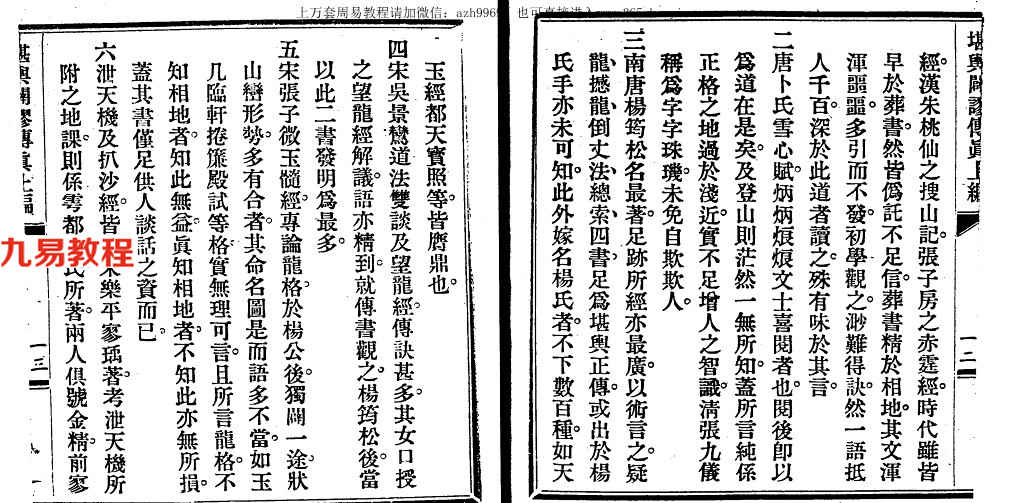 上万套周易教程请加微信：azh996
也可直接进入
堪輿闢謬傳眞上編
一二
經漢朱桃仙之搜山記張子房之赤霆經時代雖皆
早於葬書然皆僞託不足信葬書精於相地其文渾
渾噩噩多引而不發初學觀之渺難得訣然一語抵
人千百深於此道者讀之殊有味於其言
二唐卜氏雪心賦炳炳烺烺文士喜閱者也閱後卽以
爲道在是矣及登山則茫然一無所知蓋所言純係
正格之地過於淺近實不足增人之智識淸張九儀
稱爲字字珠璣未免自欺欺人
三南唐楊筠松名最著足跡所經亦最廣以術言之疑
龍撼龍倒丈法總索四書足爲堪輿正傳或出於楊
氏手亦未可知此外嫁名楊氏者不下數百種如天
玉經都天寶照等皆贋鼎也
四宋吳景鸞道法雙談及望龍經傳訣甚多其女口授
之望龍經解議語亦精到就傳書觀之楊筠松後當
以此二書發明爲最多
五宋張子微玉髓經專論龍格於楊公後獨闢一途狀
山巒形勢多有合者其命名圖是而語多不當如玉
几臨軒捲簾殿試等格實無理可言且所言龍格不
知相地者知此無益眞知相地者不知此亦無所損
蓋其書僅足供人談話之資而已
六泄天機及扒沙經皆 宋樂平寥瑀著考泄天機所
附之地課則係雩都 氏所著兩人俱號金精前寥
堪輿闢謬傳眞上編
一三
九易教程